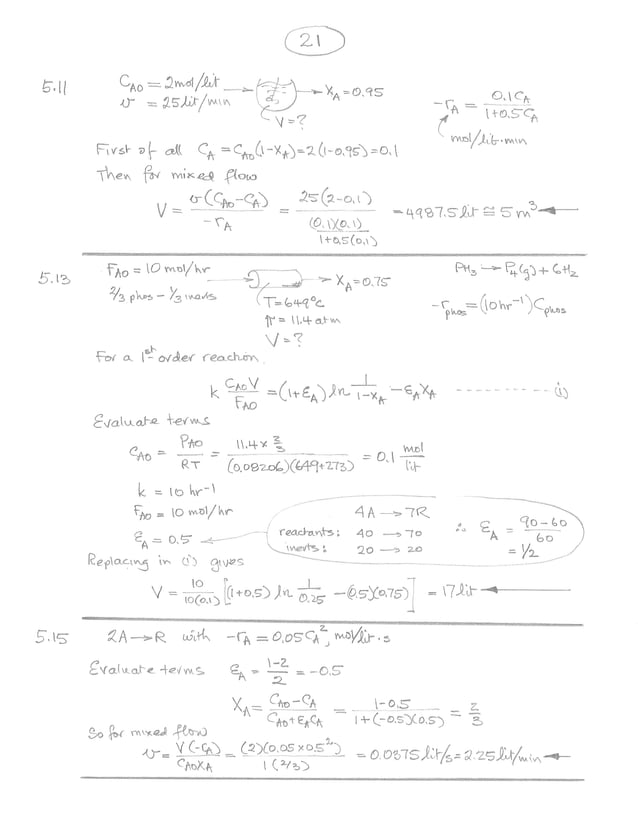 21
5.11 C_A0 = 2 mol/lit → X_A = 0.95
v = 25 lit/min
V = ?
-r_A = 0.1 C_A / (1 + 0.5 C_A)
mol/lit·min
First of all C_A = C_A0(1-X_A) = 2(1-0.95) = 0.1
Then for mixed flow
V = v(C_A0 - C_A) / -r_A = 25(2-0.1) / ((0.1)(0.1) / (1+0.5(0.1))) = 4987.5 lit ≅ 5 m³ ←
5.13 F_A0 = 10 mol/hr → X_A = 0.75
2/3 phos - 1/3 inerts
T = 649°C
π = 11.4 atm
V = ?
PH3 → P4(g) + 6H2
-r_phos = (10 hr⁻¹) C_phos
For a 1st order reaction
k C_A0 V / F_A0 = (1+ε_A) ln 1/(1-X_A) - ε_A X_A ---------- (i)
Evaluate terms
C_A0 = P_A0 / RT = 11.4 × 2/3 / (0.08206)(649+273) = 0.1 mol/lit
k = 10 hr⁻¹
F_A0 = 10 mol/hr
ε_A = 0.5 ←
4A → 7R
reactants: 40 → 70
inerts: 20 → 20
∴ ε_A = (90-60)/60
= 1/2
Replacing in (i) gives
V = 10/10(0.1) [(1+0.5) ln 1/0.25 - (0.5)(0.75)] = 17 lit ←
5.15 2A → R with -r_A = 0.05 C_A², mol/lit·s
Evaluate terms ε_A = (1-2)/2 = -0.5
X_A = (C_A0 - C_A) / (C_A0 + ε_A C_A) = (1-0.5) / (1+(-0.5)(0.5)) = 2/3
So for mixed flow
v = V(-r_A) / C_A0 X_A = (2)(0.05×0.5²) / 1(2/3) = 0.0375 lit/s = 2.25 lit/min ←